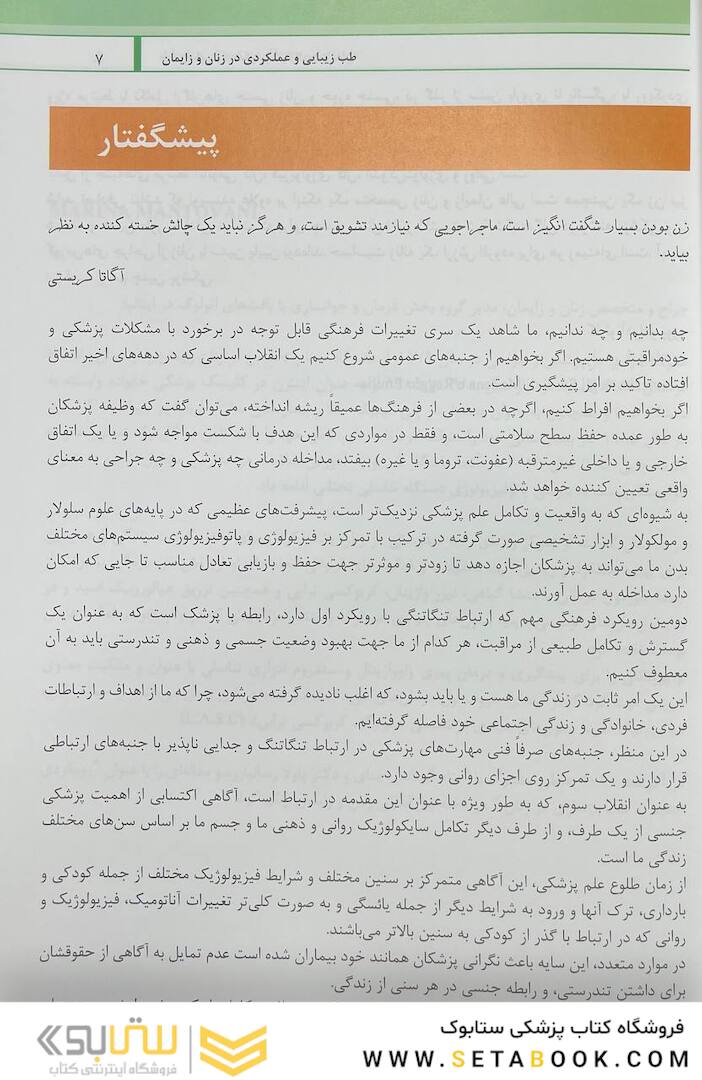 طب زیبایی و عملکردی در زنان و زایمان ۷
پیشگفتار
زن بودن بسیار شگفت انگیز است، ماجراجویی که نیازمند تشویق است، و هرگز نباید یک چالش خسته کننده به نظر
بیاید.
آگاتا کریستی
چه بدانیم و چه ندانیم، ما شاهد یک سری تغییرات فرهنگی قابل توجه در برخورد با مشکلات پزشکی و
خودمراقبتی هستیم. اگر بخواهیم از جنبه‌های عمومی شروع کنیم یک انقلاب اساسی که در دهه‌های اخیر اتفاق
افتاده تاکید بر امر پیشگیری است.
اگر بخواهیم افراط کنیم، اگرچه در بعضی از فرهنگ‌ها عمیقاً ریشه انداخته، می‌توان گفت که وظیفه پزشکان
به طور عمده حفظ سطح سلامتی است، و فقط در مواردی که این هدف با شکست مواجه شود و یا یک اتفاق
خارجی و یا داخلی غیرمترقبه (عفونت، تروما و یا غیره) بیفتد، مداخله درمانی چه پزشکی و چه جراحی به معنای
واقعی تعیین کننده خواهد شد.
به شیوه‌ای که به واقعیت و تکامل علم پزشکی نزدیک‌تر است، پیشرفت‌های عظیمی که در پایه‌های علوم سلولار
و مولکولار و ابزار تشخیصی صورت گرفته در ترکیب با تمرکز بر فیزیولوژی و پاتوفیزیولوژی سیستم‌های مختلف
بدن ما می‌تواند به پزشکان اجازه دهد تا زودتر و موثرتر جهت حفظ و بازیابی تعادل مناسب تا جایی که امکان
دارد مداخله به عمل آورند.
دومین رویکرد فرهنگی مهم که ارتباط تنگاتنگی با رویکرد اول دارد، رابطه با پزشک است که به عنوان یک
گسترش و تکامل طبیعی از مراقبت، هر کدام از ما جهت بهبود وضعیت جسمی و ذهنی و تندرستی باید به آن
معطوف کنیم.
این یک امر ثابت در زندگی ما هست و یا باید بشود، که اغلب نادیده گرفته می‌شود، چرا که ما از اهداف و ارتباطات
فردی، خانوادگی و زندگی اجتماعی خود فاصله گرفته‌ایم.
در این منظر، جنبه‌های صرفاً فنی مهارت‌های پزشکی در ارتباط تنگاتنگ و جدایی ناپذیر با جنبه‌های ارتباطی
قرار دارند و یک تمرکز روی اجزای روانی وجود دارد.
به عنوان انقلاب سوم، که به طور ویژه با عنوان این مقدمه در ارتباط است، آگاهی اکتسابی از اهمیت پزشکی
جنسی از یک طرف، و از طرف دیگر تکامل سایکولوژیک روانی و ذهنی ما و جسم ما بر اساس سن‌های مختلف
زندگی ما است.
از زمان طلوع علم پزشکی، این آگاهی متمرکز بر سنین مختلف و شرایط فیزیولوژیک مختلف از جمله کودکی و
بارداری، ترک آنها و ورود به شرایط دیگر از جمله یائسگی و به صورت کلی‌تر تغییرات آناتومیک، فیزیولوژیک و
روانی که در ارتباط با گذر از کودکی به سنین بالاتر می‌باشند.
در موارد متعدد، این سایه باعث نگرانی پزشکان همانند خود بیماران شده است عدم تمایل به آگاهی از حقوقشان
برای داشتن تندرستی، و رابطه جنسی در هر سنی از زندگی.
فروشگاه کتاب پزشکی ستابوک
WWW.SETABOOK.COM
ستابوک
فروشگاه اینترنتی کتاب